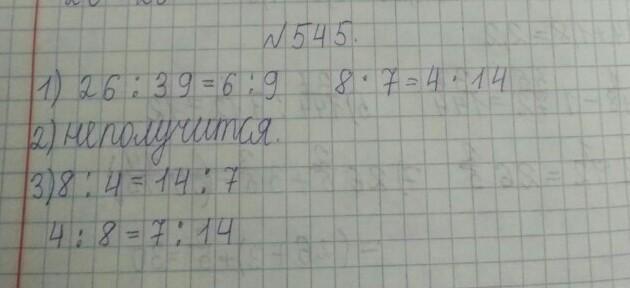 №545.
1) 26 : 39 = 6 : 9 8 · 7 = 4 · 14
2) неполучится.
3) 8 : 4 = 14 : 7
4 : 8 = 7 : 14